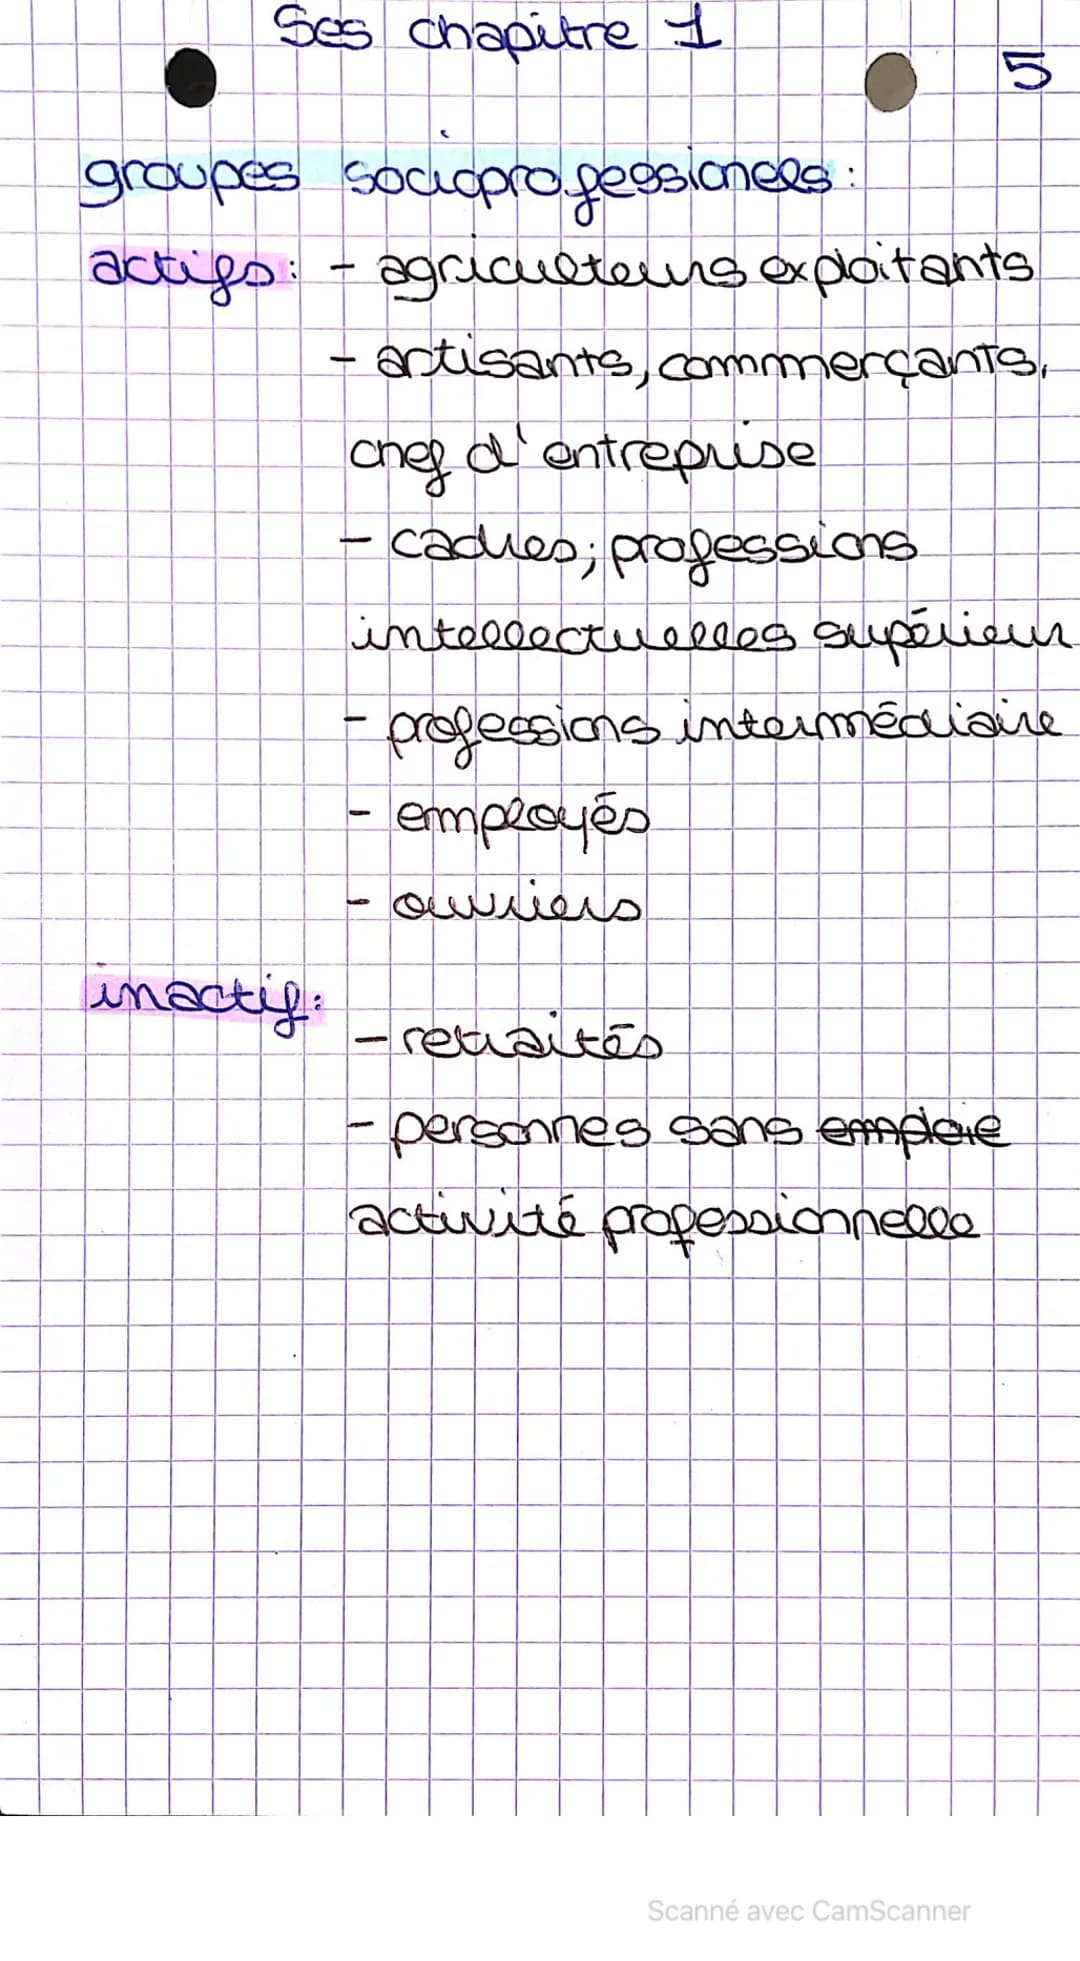 Ses chapitre 1
5
groupes socioprofessionels :
actifs : - agriculteurs exploitants
- artisants, commmerçants,
chef d'entreprise
- cadres; professions
intellectuelles supérieur
- professions intermédiaire
- employés
- ouvriers
inactif :
- retraités
- personnes sans emploie
activité professionnelle
Scanné avec CamScanner